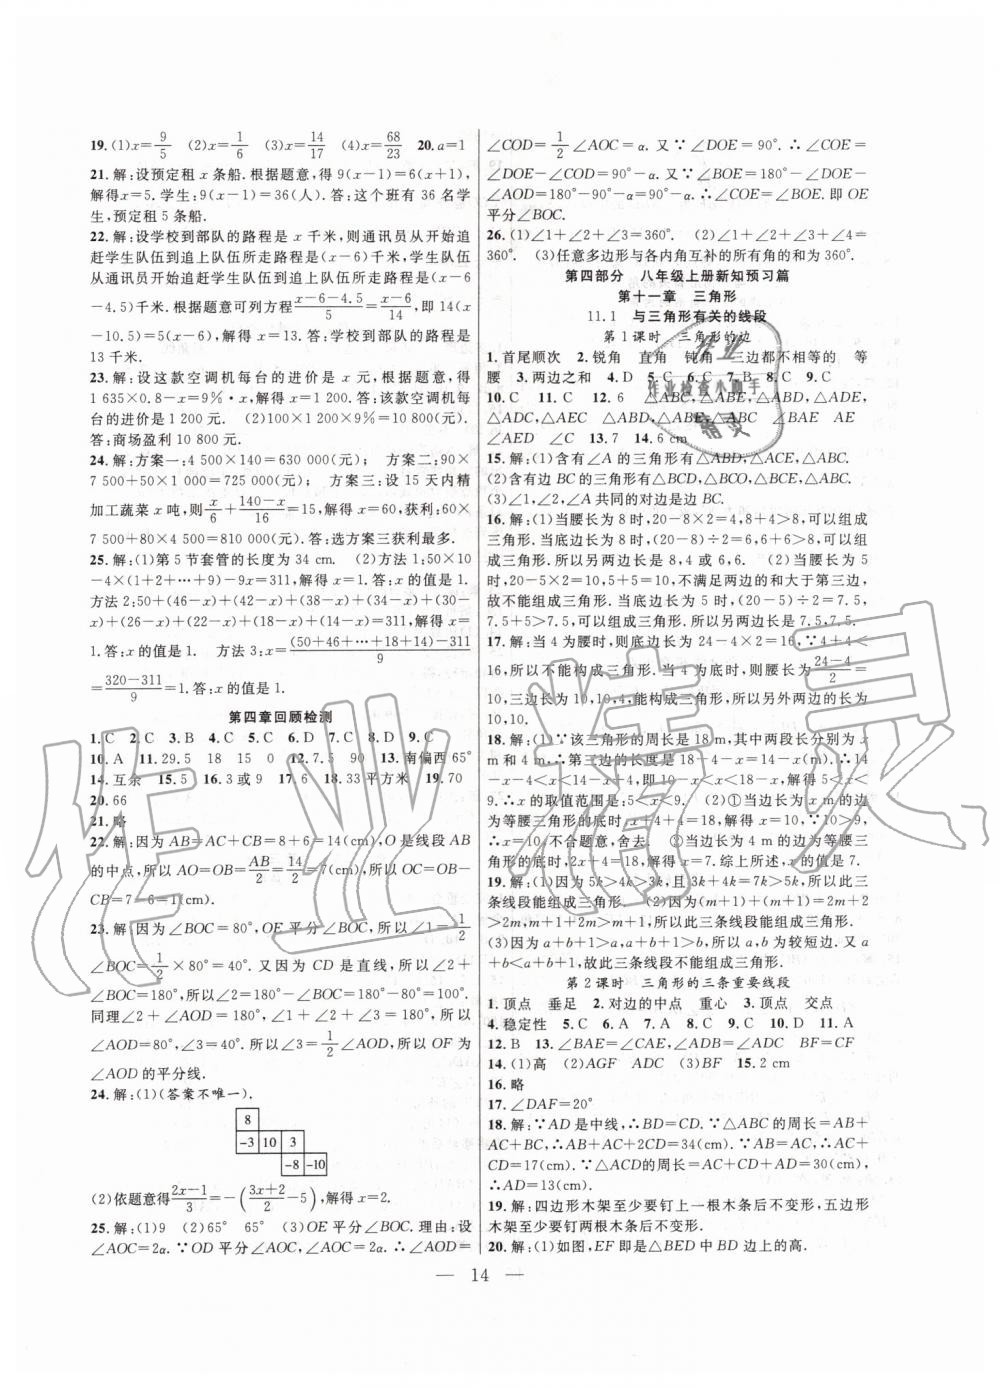 19.(1)x=9/5 (2)x=1/6 (3)x=14/17 (4)x=68/23 20.a=1
21.解:设预定租 x 条船.根据题意,得 9(x-1)=6(x+1),
解得x=5.学生:9(x-1)=36(人).答:这个班有 36 名学
生,预定租 5 条船.
22.解:设学校到部队的路程是 x 千米,则通讯员从开始追
赶学生队伍到追上队伍所走路程为(x-6)千米,学生队伍
从通讯员追赶学生队伍到追上队伍所走路程为(x-6
-4.5)千米.根据题意可列方程(x-6-4.5)/5=(x-6)/14,即14(x
-10.5)=5(x-6),解得 x=13.答:学校到部队的路程是
13 千米.
23.解:设这款空调机每台的进价是 x 元.根据题意,得
1 635×0.8-x=9%·x,解得x=1 200.答:这款空调机每
台的进价是 1 200 元. (2)100×1 200×9%=10 800(元).
答:商场盈利 10 800 元.
24.解:方案一:4 500×140=630 000(元); 方案二:90×
7 500+50×1 000=725 000(元); 方案三:设 15 天内精
加工蔬菜 x 吨,则x/6+(140-x)/16=15,解得 x=60,获利:60×
7 500+80×4 500=810 000(元).答:选方案三获利最多.
25.解:(1)第 5 节套管的长度为 34 cm. (2)方法 1:50×10
-4x(1+2+…+9)-9x=311,解得 x=1.答:x 的值是 1.
方法 2:50+(46-x)+(42-x)+(38-x)+(34-x)+(30-
x)+(26-x)+(22-x)+(18-x)+(14-x)=311,解得 x=
1.答:x 的值是 1. 方法 3:x=((50+46+…+18+14)-311)/9
=(320-311)/9=1.答:x 的值是 1.
第四章回顾检测
1.C 2.C 3.B 4.C 5.C 6.D 7.D 8.D 9.C
10.A 11.29.5 18 15 0 12.7.5 90 13.南偏西 65°
14.互余 15.5 16.3 或 9 17.6 18.33 平方米 19.70
20.66
21.略
22.解:因为 AB=AC+CB=8+6=14(cm),O 是线段 AB
的中点,所以 AO=OB=AB/2=14/2=7(cm),所以 OC=OB-
CB=7-6=1(cm).
23.解:因为∠BOC=80°,OE 平分∠BOC,所以∠1=1/2
∠BOC=1/2×80°=40°.又因为 CD 是直线,所以∠2+
∠BOC=180°,所以∠2=180°-∠BOC=180°-80°=100°.
同理∠2+∠AOD=180°,∠1+∠2+∠3=180°,所以
∠AOD=80°,所以∠3=40°.所以∠3=1/2∠AOD,所以 OF 为
∠AOD 的平分线.
24.解:(1)(答案不唯一).
8
-3 10 3
-8 -10
(2)依题意得(2x-1)/3=-((3x+2)/2-5),解得 x=2.
25.解:(1)9 (2)65° 65° (3)OE 平分∠BOC.理由:设
∠AOC=2α.∵OD 平分∠AOC,∠AOC=2α.∴∠AOD=
∠COD=1/2∠AOC=α.又∵∠DOE=90°.∴∠COE=
∠DOE-∠COD=90°-α.又∵∠BOE=180°-∠DOE-
∠AOD=180°-90°-α=90°-α.∴∠COE=∠BOE.即 OE
平分∠BOC.
26.(1)∠1+∠2+∠3=360°. (2)∠1+∠2+∠3+∠4=
360°. (3)任意多边形与各内角互补的所有角的和为 360°.
第四部分 八年级上册新知预习篇
第十一章 三角形
11.1 与三角形有关的线段
第 1 课时 三角形的边
1.首尾顺次 2.锐角 直角 钝角 三边都不相等的 等
腰 3.两边之和 4.D 5.C 6.C 7.C 8.B 9.C
10.C 11.C 12.6 △ABC,△ABE,△ABD,△ADE,
△ADC,△AEC △ABD,△ABE,△ABC ∠BAE AE
∠AED ∠C 13.7 14.6 cm
15.解:(1)含有∠A 的三角形有△ABD,△ACE,△ABC.
(2)含有边 BC 的三角形有△BCD,△BOC,△BCE,△ABC.
(3)∠1,∠2,∠A 共同的对边是边 BC.
16.解:(1)当腰长为 8 时,20-8×2=4,8+4>8,可以组成
三角形.当底边长为 8 时,(20-8)÷2=6,6+6>8,可以组
成三角形.所以另两边长是 8,4 或 6,6. (2)当腰长为 5
时,20-5×2=10,5+5=10,不满足两边的和大于第三边,
故不能组成三角形.当底边长为 5 时,(20-5)÷2=7.5,
7.5+5>7.5,可以组成三角形,所以另两边长是 7.5,7.5.
17.解:当 4 为腰时,则底边长为 24-4×2=16,∵4+4<
16,所以不能构成三角形.当 4 为底时,则腰长为(24-4)/2=
10,三边长为 10,10,4,能构成三角形,所以另外两边长为
10,10.
18.解:(1)∵该三角形的周长是 18 m,其中两段长分别为 x
m和 4 m,∴第三边的长度是 18-4-x=14-x(m),∴x-4<
14-x<4+x,∴14-x-4<x<14-x+4,∴5<x<
9.∴x 的取值范围是:5<x<9. (2)①当边长为 x m 的边
为等腰三角形的腰时,x=18-x-4,解得 x=10,∵10>9,
∴x=10 不合题意,舍去. ②当边长为 4 m 的边为等腰三
角形的底时,2x+4=18,解得 x=7.综上所述,x 的值是 7.
19.解:(1)因为 5k>4k>3k,且 3k+4k=7k>5k,所以此三
条线段能组成三角形. (2)因为(m+1)+(m+1)=2m+2
>2m,m+1+2m>m+1,所以此三条线段能组成三角形.
(3)因为 a+b+1>a,a+b+1>b,所以 a,b 为较短边.又 a
+b<a+b+1,故此三条线段不能组成三角形.
第 2 课时 三角形的三条重要线段
1.顶点 垂足 2.对边的中点 重心 3.顶点 交点
4.稳定性 5.C 6.A 7.B 8.C 9.C 10.D 11.A
12.B 13.∠BAE=∠CAE,∠ADB=∠ADC BF=CF
14.(1)高 (2)AGF ADC (3)BF 15.2 cm
16.略
17.∠DAF=20°
18.解:∵AD 是中线,∴BD=CD.∵△ABC 的周长=AB+
AC+BC,∴2AC+2CD=34(cm).∵AB=AC,∴AC+
CD=17(cm).∵△ACD的周长=AC+CD+AD=30(cm),
∴AD=13(cm).
19.解:四边形木架至少要钉上一根木条后不变形,五边形
木架至少要钉两根木条后不变形.
20.解:(1)如图,EF 即是△BED 中 BD 边上的高.
— 14 —
作业
作业检查小助手
精灵
作业精灵